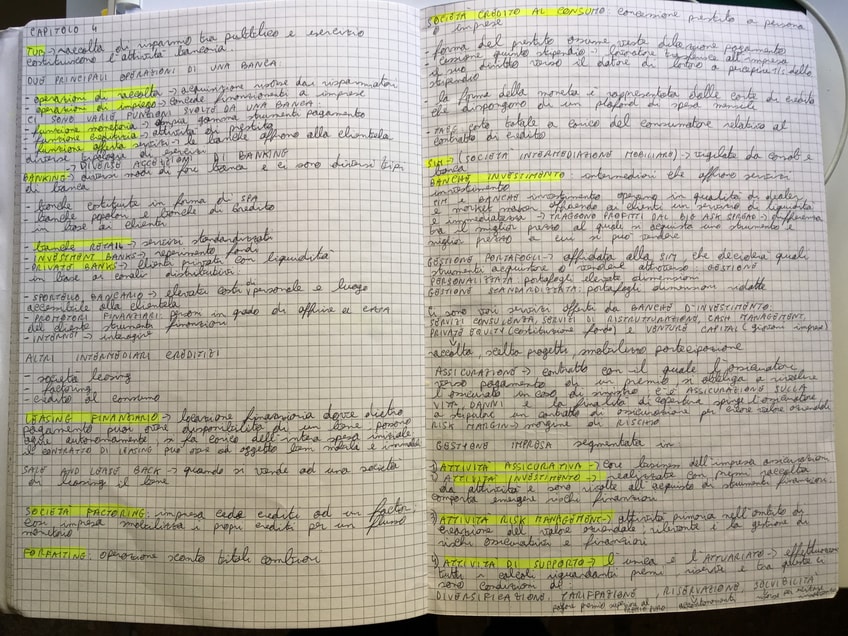 CAPITOLO 4
TUB → raccolta di risparmio tra pubblico e esercizio
costituiscono l'attività bancaria.
DUE PRINCIPALI OPERAZIONI DI UNA BANCA
- operazioni di raccolta → acquisizione risorse dai risparmiatori
- operazioni di impiego → concede finanziamenti a imprese
CI SONO VARIE FUNZIONI SVOLTE DA UNA BANCA:
- funzione monetaria → ampia gamma strumenti pagamento
- funzione creditizia → attività di prestito
- funzione offerta servizi → le banche offrono alla clientela
diverse tipologie di servizi
DIVERSE ACCEZIONI DI BANKING
BANKING → diversi modi di fare banca e ci sono diversi tipi
di banca
- banche costituite in forma di SPA
- banche popolari e banche di credito
in base ai clienti
- banche RETAIL → servizi standardizzati
- INVESTMENT BANKS → reperimento fondi
- PRIVATE BANKS → clienti privati con liquidità
in base ai canali distributivi
- SPORTELLO BANCARIO → elevati costi di personale e luogo
accessibile alla clientela
- PROMOTORI FINANZIARI: persone in grado di offrire
del cliente strumenti finanziari
- INTERNET →
ALTRI INTERMEDIARI CREDITIZI
- società leasing
- factoring
- credito al consumo
LEASING FINANZIARIO → locazione finanziaria dove dietro
pagamento puoi avere disponibilità di un bene
autonomamente, si fa carico dell'intera spesa iniziale
il CONTRATTO DI LEASING può avere ad oggetto beni mobili e immobili
SALE AND LEASE BACK → quando si vende ad una società
di leasing il bene
SOCIETÀ FACTORING: impresa cede crediti ad un factor.
Così impresa mobilizza i propri crediti per un flusso
monetario
FORFAITING: operazione sconto titoli cambiari
SOCIETÀ CREDITO AL CONSUMO concessione prestito a persona
o imprese
- forma del prestito assume veste dilazione pagamento
- cessione quinto stipendio → lavoratore trasferisce all'impresa
il suo diritto verso il datore di lavoro a percepire 1/5 dello
stipendio
- la forma della moneta è rappresentata dalle carte di credito
che dispongono di un plafond di spesa mensile
- TAEG costo totale a carico del consumatore relativo al
contratto di credito
SIM → (SOCIETÀ INTERMEDIAZIONE MOBILIARE) → regolate da consob e
banca
BANCHE INVESTIMENTO intermediari che offrono servizi
investimento
SIM E BANCHE investimento operano in qualità di dealer
e market maker offrendo ai clienti un servizio di liquidità
e immediatezza → TRAGGONO PROFITTI DAL BID ASK SPREAD → differenza
tra il miglior prezzo al quale si acquista uno strumento e
miglior prezzo a cui si può vendere
GESTIONE PORTAFOGLI → affidata alla SIM, che deciderà quali
strumenti acquistare o vendere attraverso: GESTIONE
PERSONALIZZATA: portafogli elevate dimensioni
GESTIONE STANDARDIZZATA: portafogli dimensioni ridotte
Ci sono vari servizi offerti da BANCHE D'INVESTIMENTO:
SERVIZI CONSULENZA, SERVIZI DI RISTRUTTURAZIONE, CASH MANAGEMENT,
PRIVATE EQUITY (costituzione fondo) E VENTURE CAPITAL (giovani imprese)
raccolta, scelta progetti, smobilizzo partecipazione
ASSICURAZIONE → contratto con il quale l'assicuratore
verso pagamento di un premio si obbliga a rivalere
l'assicurato in caso di sinistro e è ASSICURAZIONE SULLA
VITA, DANNI e la funzione di copertura spinge l'assicuratore
a stipulare un contratto di assicurazione per avere valore aziendale
RISK MARGIN → margine di RISCHIO
GESTIONE IMPRESA segmentata in
1) ATTIVITÀ ASSICURATIVA → core business dell'impresa assicurazioni
2) ATTIVITÀ INVESTIMENTO → realizzate con premi raccolta
da attività e sono rivolte all'acquisto di strumenti finanziari.
comporta emergere rischi finanziari
3) ATTIVITÀ RISK MANAGEMENT → attività primaria nell'ambito di
creazione del valore aziendale, rilevante è la gestione di
rischi assicurativi e finanziari
4) ATTIVITÀ DI SUPPORTO → l'unica è l'ATTUARIATO → effettuare
tutti i calcoli riguardanti premi riserve e tra queste ci
sono condizioni di:
DIVERSIFICAZIONE, TARIFFAZIONE, RISERVAZIONE, SOLVIBILITÀ
premio superiore al